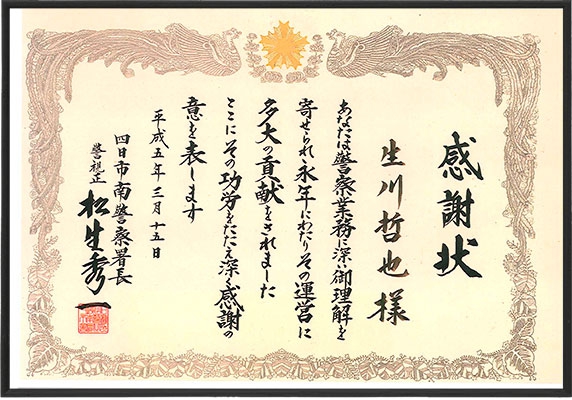 感謝状
生川哲也様
あなたは警察業務に深い御理解を
寄せられ永年にわたりその運営に
多大の貢献をされました
ここにその功労をたたえ深く感謝の
意を表します
平成五年三月十五日
四日市南警察署長
警視正 松生秀一